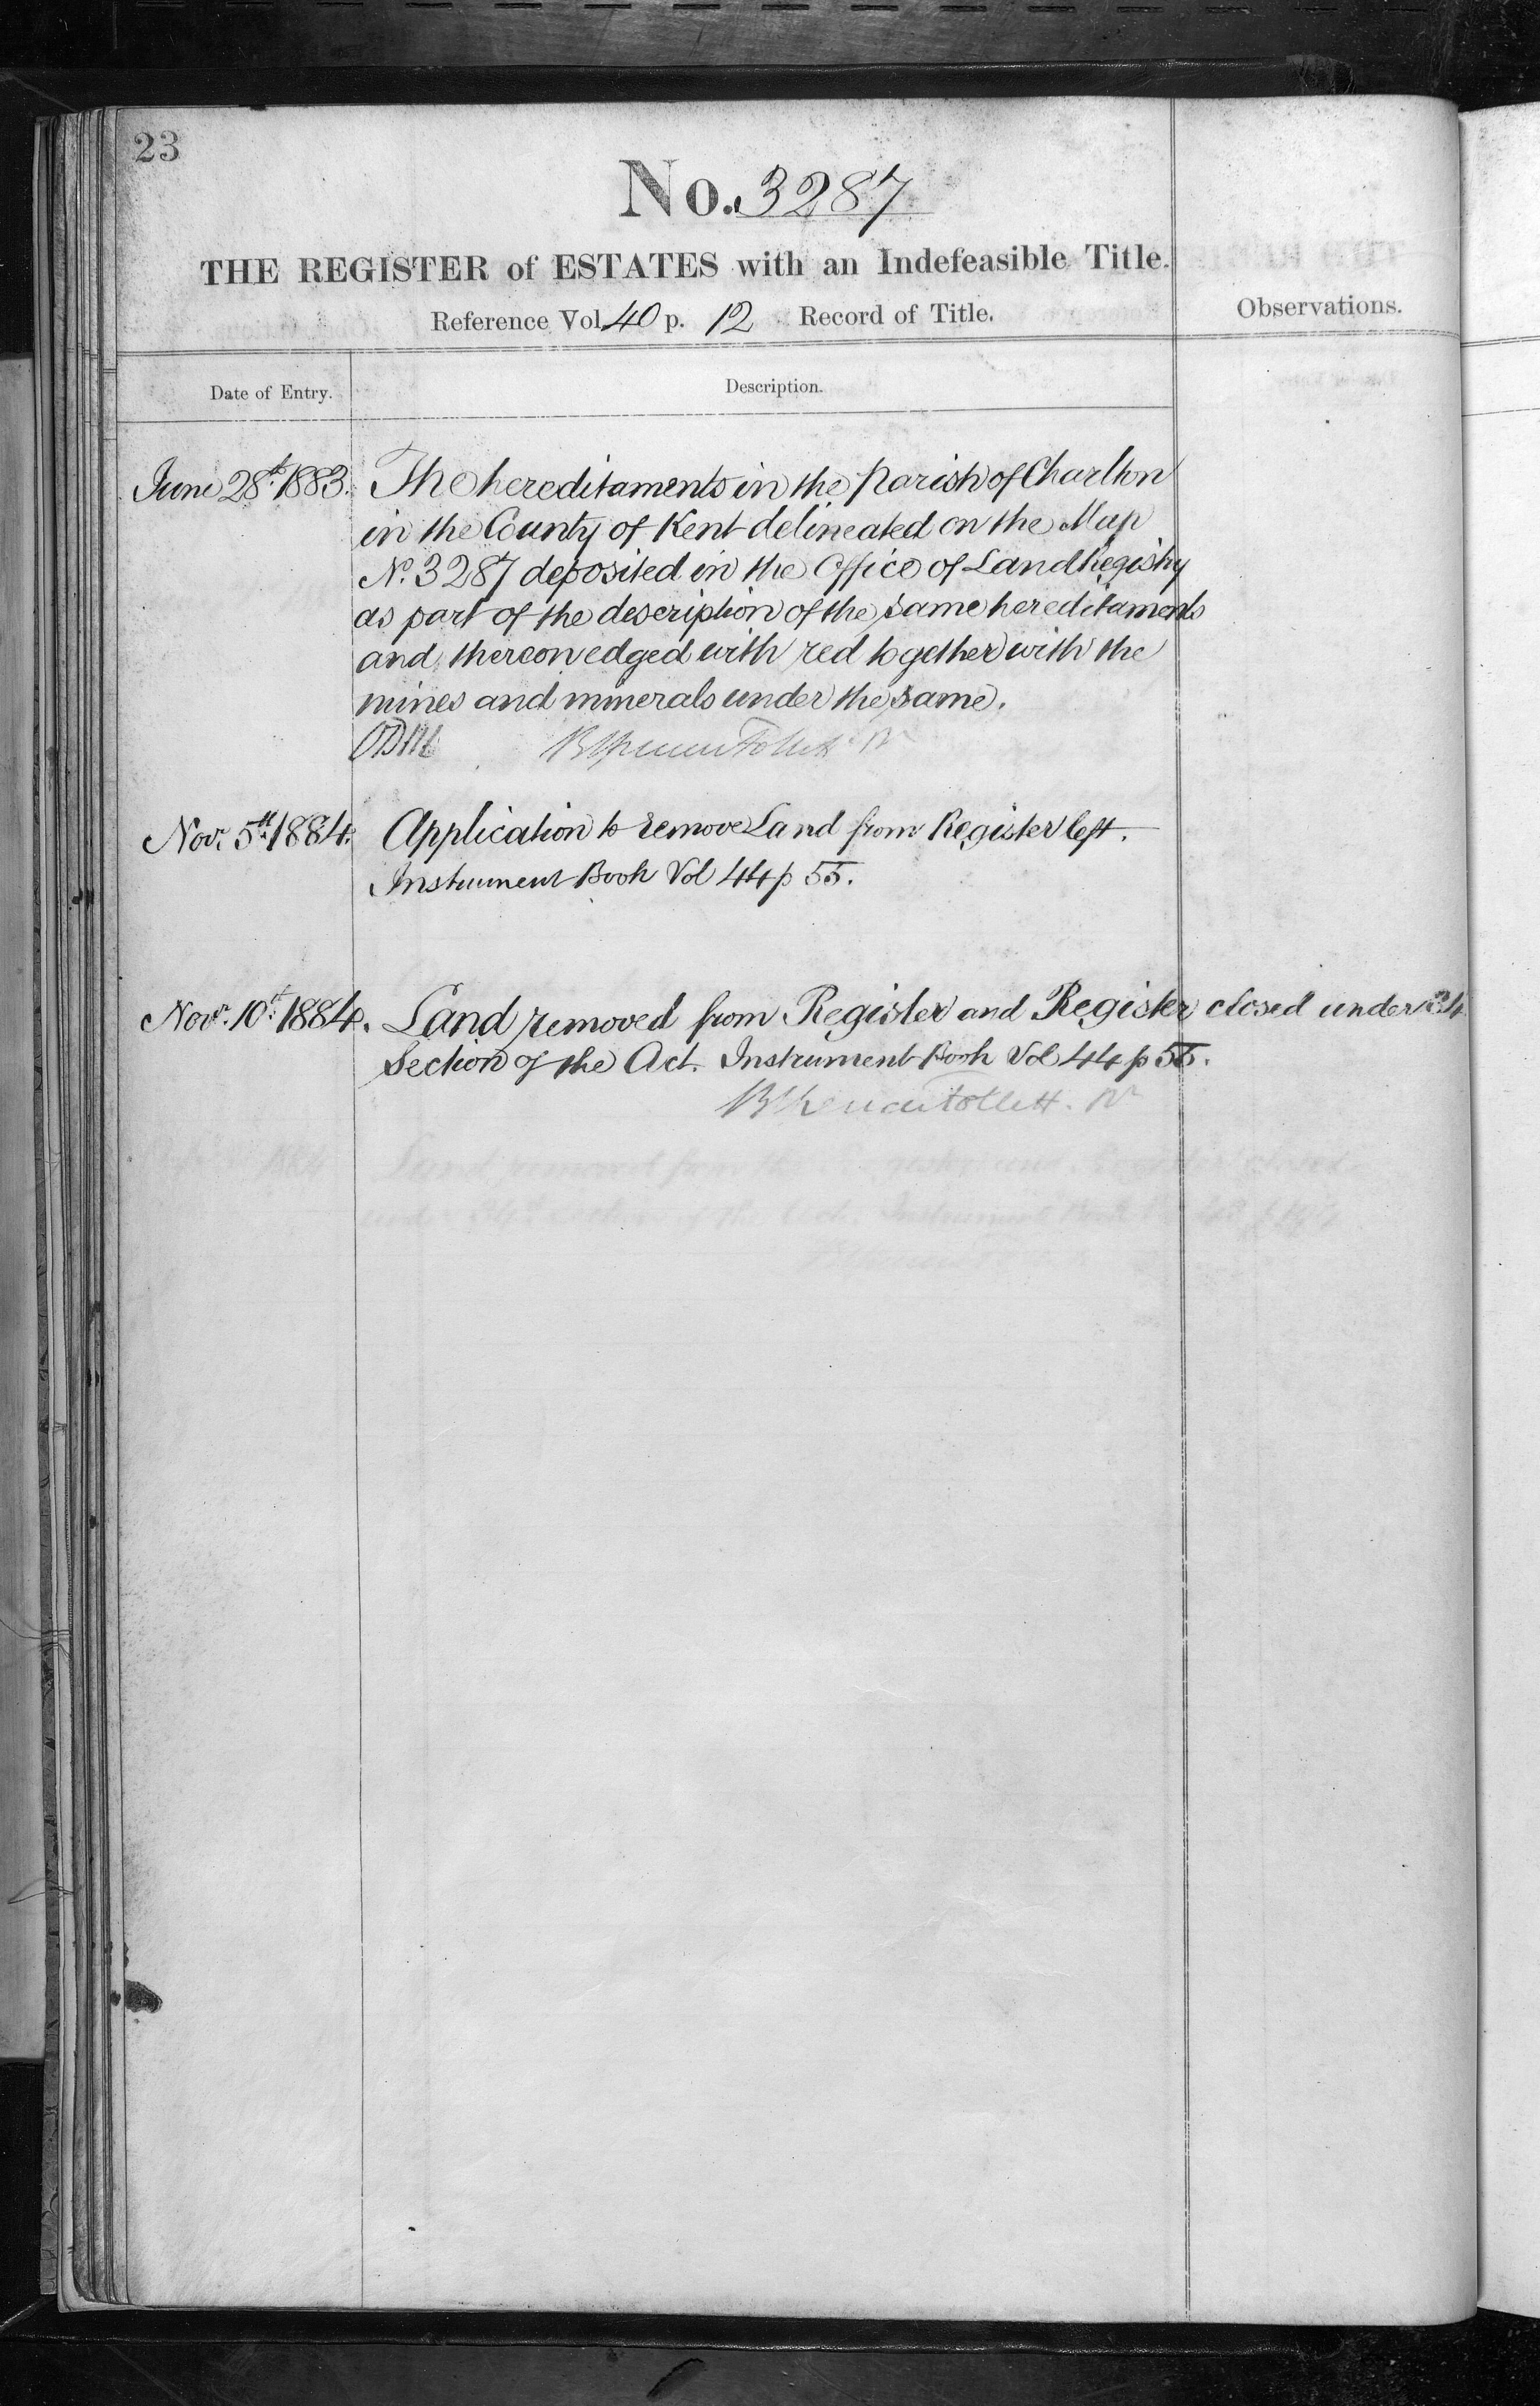 23
No. 3287
THE REGISTER of ESTATES with an Indefeasible Title.
Reference Vol. 40 p. 12 Record of Title.
Observations.
Date of Entry.
Description.
June 28th 1883. The hereditaments in the Parish of Charlton
in the County of Kent delineated on the Map
No. 3287 deposited in the Office of Land Registry
as part of the description of the same hereditaments
and thereon edged with red together with the
mines and minerals under the same.
Nov. 5th 1884. Application to remove Land from Register left.
Instrument Book Vol 44 p 55.
Novr. 10th 1884. Land removed from Register and Register closed under 34
Section of the Act. Instrument Book Vol 44 p 55.